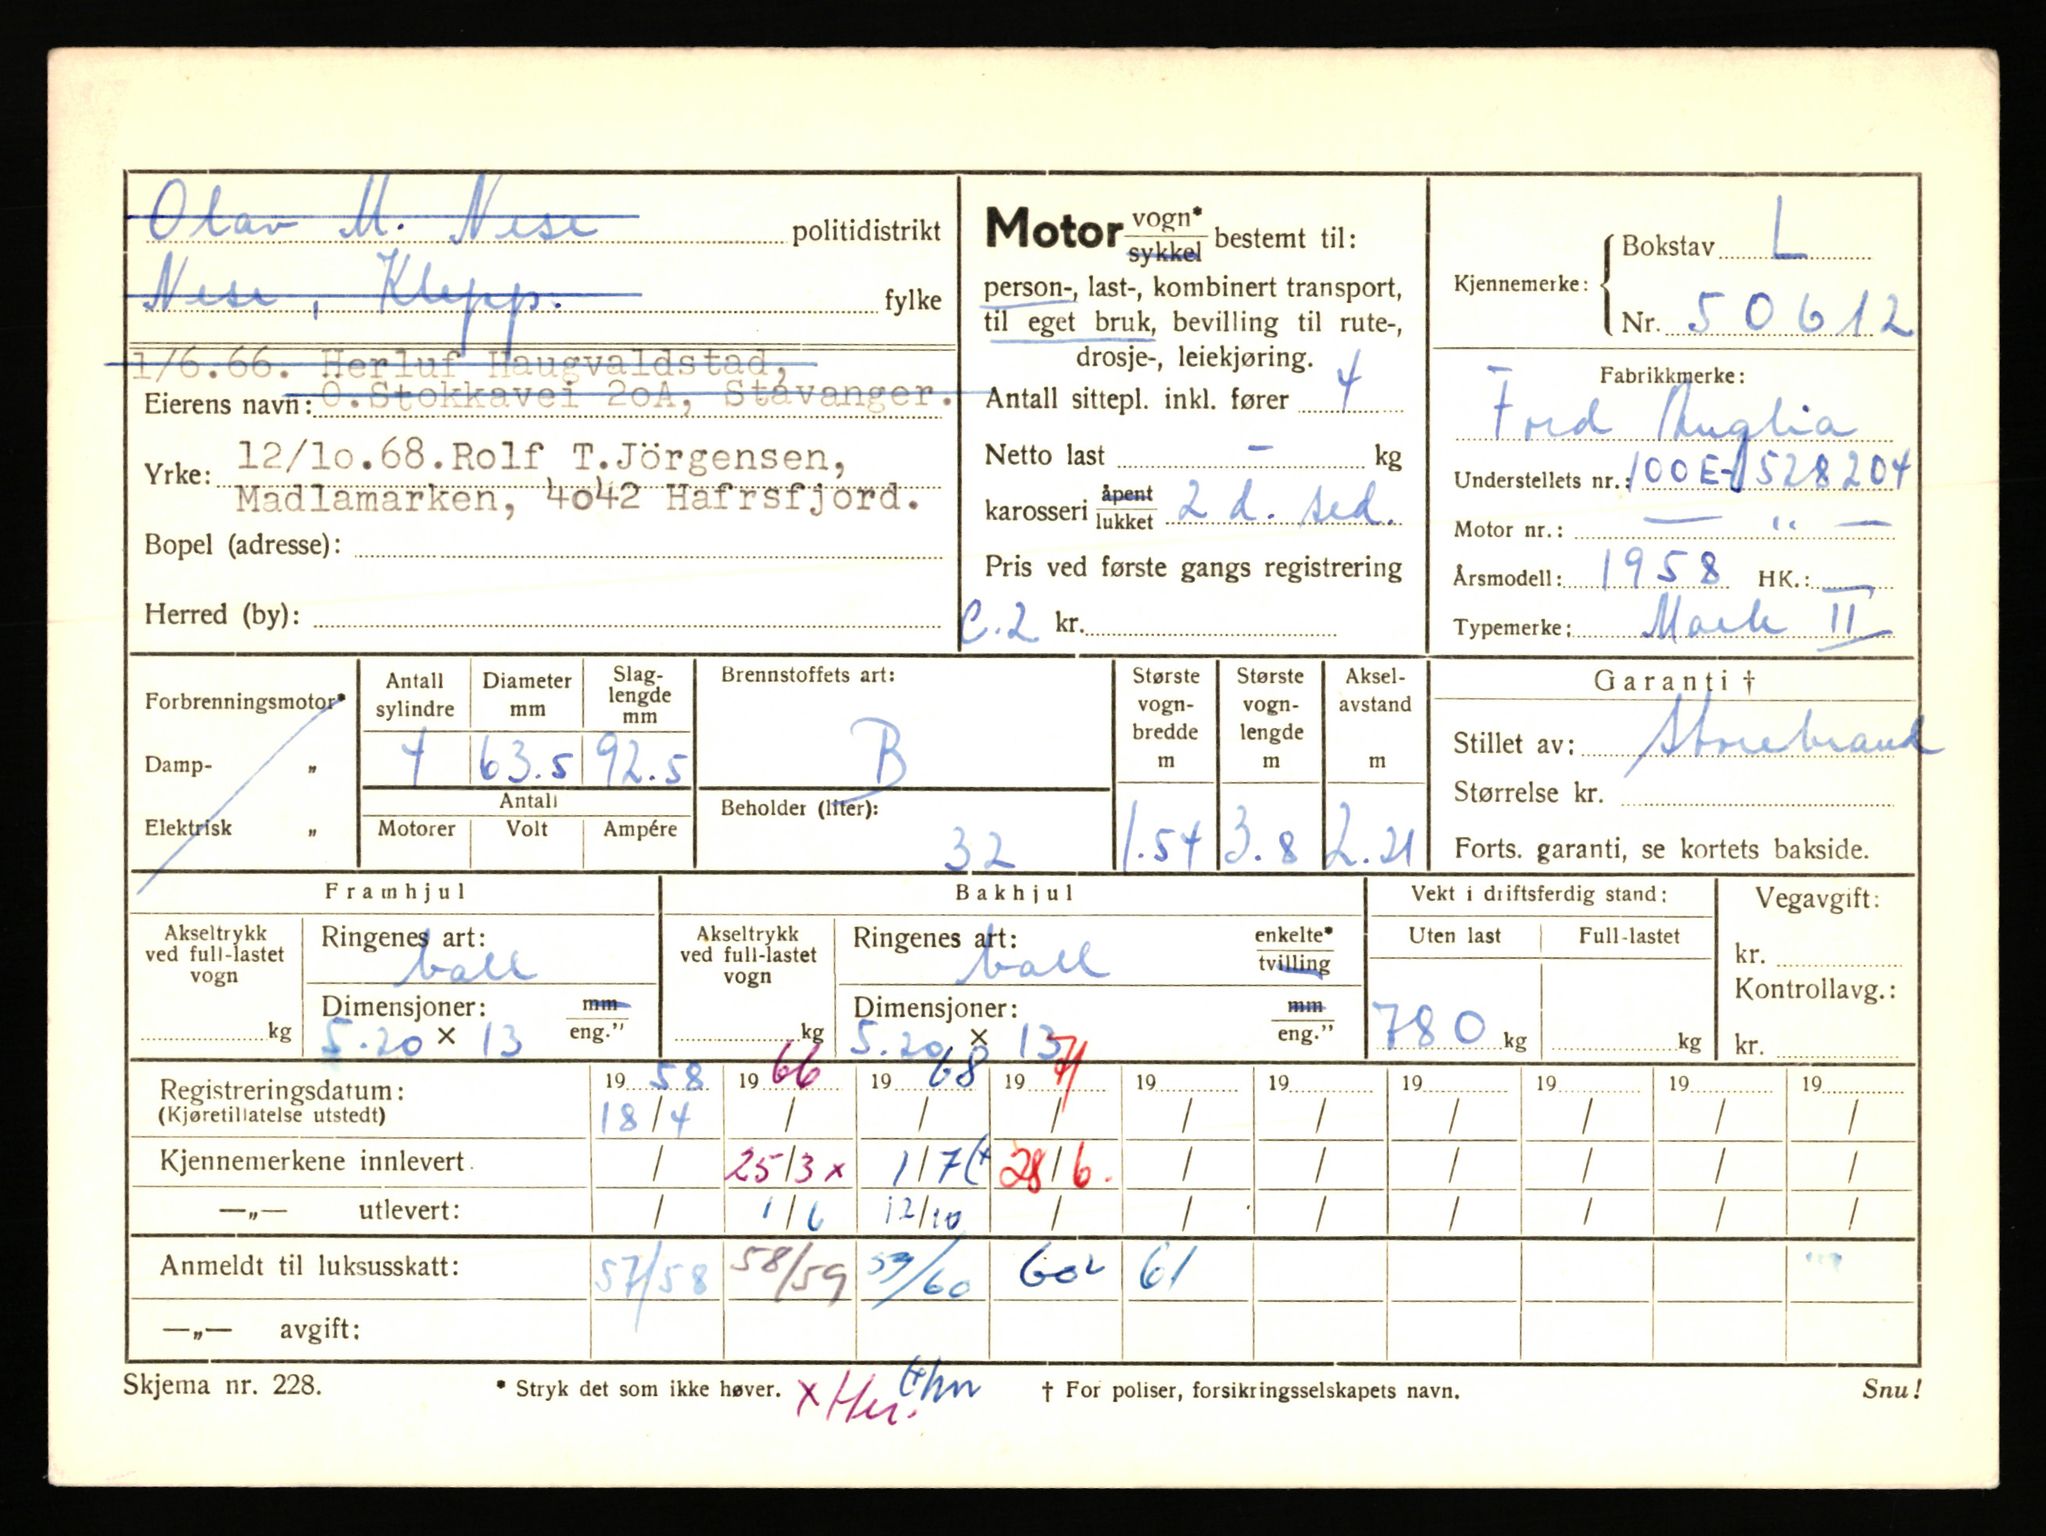 Olav M. Nese politidistrikt
Nese, Klepp. fylke
1/6.66. Herluf Haugvaldstad,
Eierens navn: O.Stokkavei 2oA, Stavanger.
12/1o.68.Rolf T.Jörgensen,
Yrke:
Madlamarken, 4o42 Hafrsfjord.
Bopel (adresse):
Herred (by):
Motor vogn* / sykkel bestemt til:
person-, last-, kombinert transport,
til eget bruk, bevilling til rute-,
drosje-, leiekjøring.
Antall sittepl. inkl. fører 4
Netto last – kg
karosseri åpent / lukket 2 d. sed.
Pris ved første gangs registrering
C.2 kr.
Kjennemerke: Bokstav L
Nr. 50612
Fabrikkmerke:
Ford Anglia
Understellets nr.: 100E-1528204
Motor nr.: — " —
Årsmodell: 1958 HK.: —
Typemerke: Mark II
Forbrenningsmotor*
Damp- „
Elektrisk „
Antall sylindre
4
Diameter mm
63.5
Slag-lengde mm
92.5
Antall
Motorer Volt Ampére
Brennstoffets art:
B
Beholder (liter):
32
Største vogn-bredde m
1.54
Største vogn-lengde m
3.8
Aksel-avstand m
2.21
Garanti †
Stillet av: Storebrand
Størrelse kr.
Forts. garanti, se kortets bakside.
Framhjul
Akseltrykk ved full-lastet vogn
kg
Ringenes art: ball
Dimensjoner: mm / eng."
5.20 × 13
Bakhjul
Akseltrykk ved full-lastet vogn
kg
Ringenes art: ball enkelte* / tvilling
Dimensjoner: mm / eng."
5.20 × 13
Vekt i driftsferdig stand:
Uten last Full-lastet
780 kg kg
Vegavgift:
kr.
Kontrollavg.:
kr.
Registreringsdatum: 1958 1966 1968 1971 19 19 19 19 19 19
(Kjøretillatelse utstedt) 18/4 / / / / / / / / /
Kjennemerkene innlevert. / 25/3 x 1/7 (+ 28/6. / / / / / /
—„— utlevert: / 1/6 12/10 / / / / / / /
Anmeldt til luksusskatt: 57/58 58/59 59/60 60² 61
—„— avgift:
Skjema nr. 228.
* Stryk det som ikke høver.
x Her.
† For poliser, forsikringsselskapets navn.
Snu!